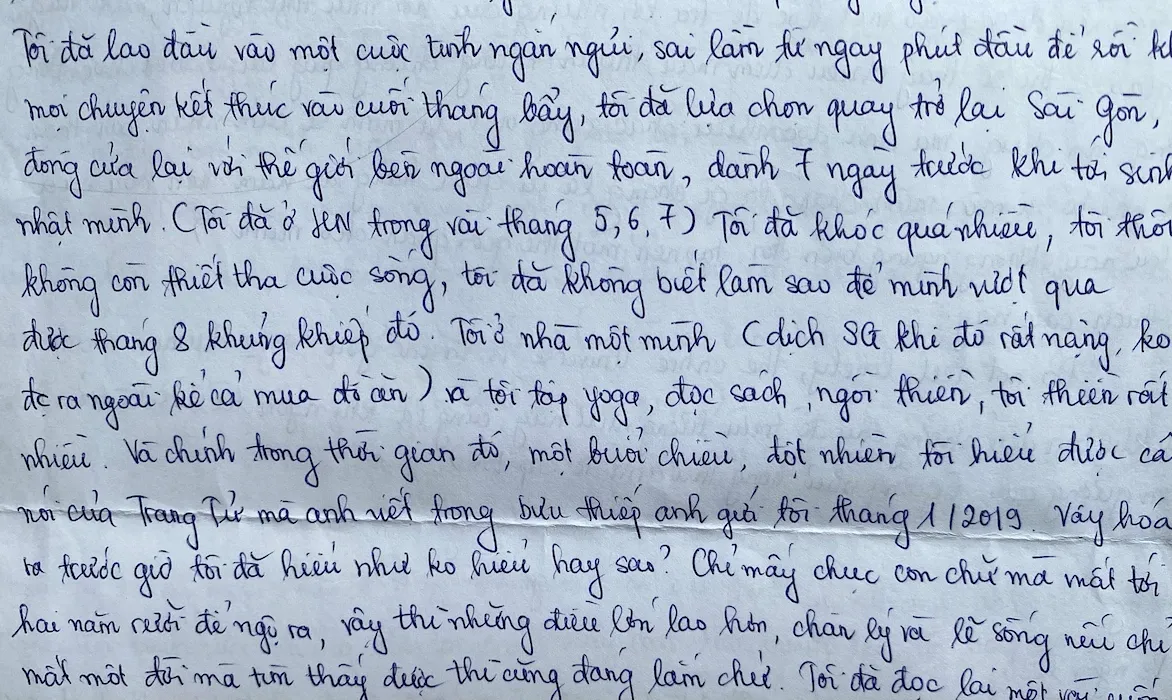 Tôi đã lao đầu vào một cuộc tình ngắn ngủi, sai lầm từ ngay phút đầu để rồi kh
mọi chuyện kết thúc vào cuối tháng bẩy, tôi đã lựa chọn quay trở lại Sài Gòn,
đóng cửa lại với thế giới bên ngoài hoàn toàn, dành 7 ngày trước khi tới sinh
nhật mình. (Tôi đã ở HN trong vài tháng 5, 6, 7) Tôi đã khóc quá nhiều, tôi thôi
không còn thiết tha cuộc sống, tôi đã không biết làm sao để mình vượt qua
được tháng 8 khủng khiếp đó. Tôi ở nhà một mình (dịch SG khi đó rất nặng, ko
đc ra ngoài kể cả mua đồ ăn) và tôi tập yoga, đọc sách, ngồi thiền, tôi thiền rất
nhiều. Và chính trong thời gian đó, một buổi chiều, đột nhiên tôi hiểu được câ
nói của Trang Tử mà anh viết trong bưu thiếp anh gửi tôi tháng 1/2019. Vậy hoá
ra trước giờ tôi đã hiểu như ko hiểu hay sao? Chỉ mấy chục con chữ mà mất tới
hai năm rưỡi để ngộ ra, vậy thì những điều lớn lao hơn, chân lý và lẽ sống nếu chỉ
mất một đời mà tìm thấy được thì cũng đáng lắm chứ. Tôi đã đọc lại một vài